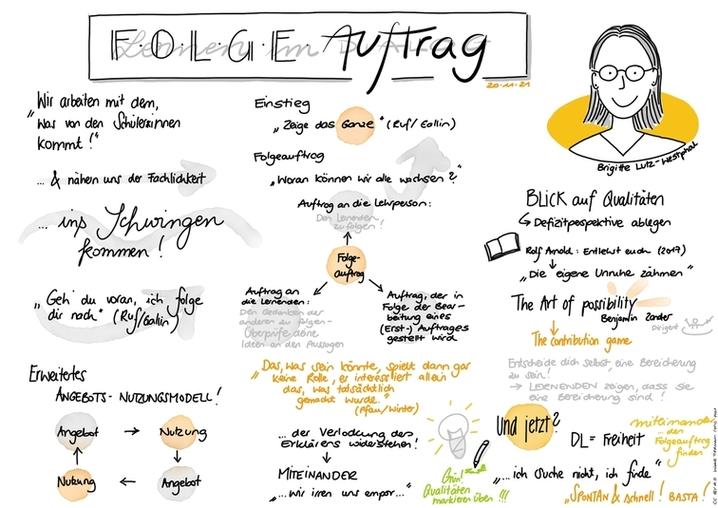 FOLGE Auftrag
Lernen im
20.11.21
"Wir arbeiten mit dem,
was von den Schüler:innen
kommt!"
... & nähern uns der Fachlichkeit
... ins Schwingen
kommen!
"Geh' du voran, ich folge
dir nach." (Ruf/Gallin)
Erweitertes
ANGEBOTS-NUTZUNGSMODELL!
Angebot → Nutzung
Nutzung ← Angebot
Einstieg
"Zeige das Ganze" (Ruf/Gallin)
Folgeauftrag
"Woran können wir alle wachsen?"
Auftrag an die Lehrperson:
Den Lernenden
zu folgen!
Folge-
auftrag
Auftrag an
die Lernenden:
Den Gedanken der
anderen zu folgen-
Überprüfe deine
Ideen an den Aussagen
Auftrag, der in
Folge der Bear-
beitung eines
(Erst-) Auftrages
gestellt wird
"Das, was sein könnte, spielt dann gar
keine Rolle, es interessiert allein
das, was tatsächlich
gemacht wurde."
(Pfau/Winter)
... der Verlockung des
Erklärens widerstehen!
MITEINANDER
"... wir irren uns empor..."
Grün!
Qualitäten
markieren üben!!!
Brigitte Lutz-Westphal
BLICK auf Qualitäten
Defizitperspektive ablegen
Rolf Arnold: Entlehrt euch (2017)
"Die eigene Unruhe zähmen"
The Art of possibility
Benjamin Zander
Dirigent
The contribution game
Entscheide dich selbst, eine Bereicherung
zu sein!
→ LERNENDEN zeigen, dass sie
eine Bereicherung sind!
Und jetzt?
DL = Freiheit
miteinander
... den
Folgeauftrag
finden
"... ich suche nicht, ich finde"
"SPONTAN & schnell! BASTA!"